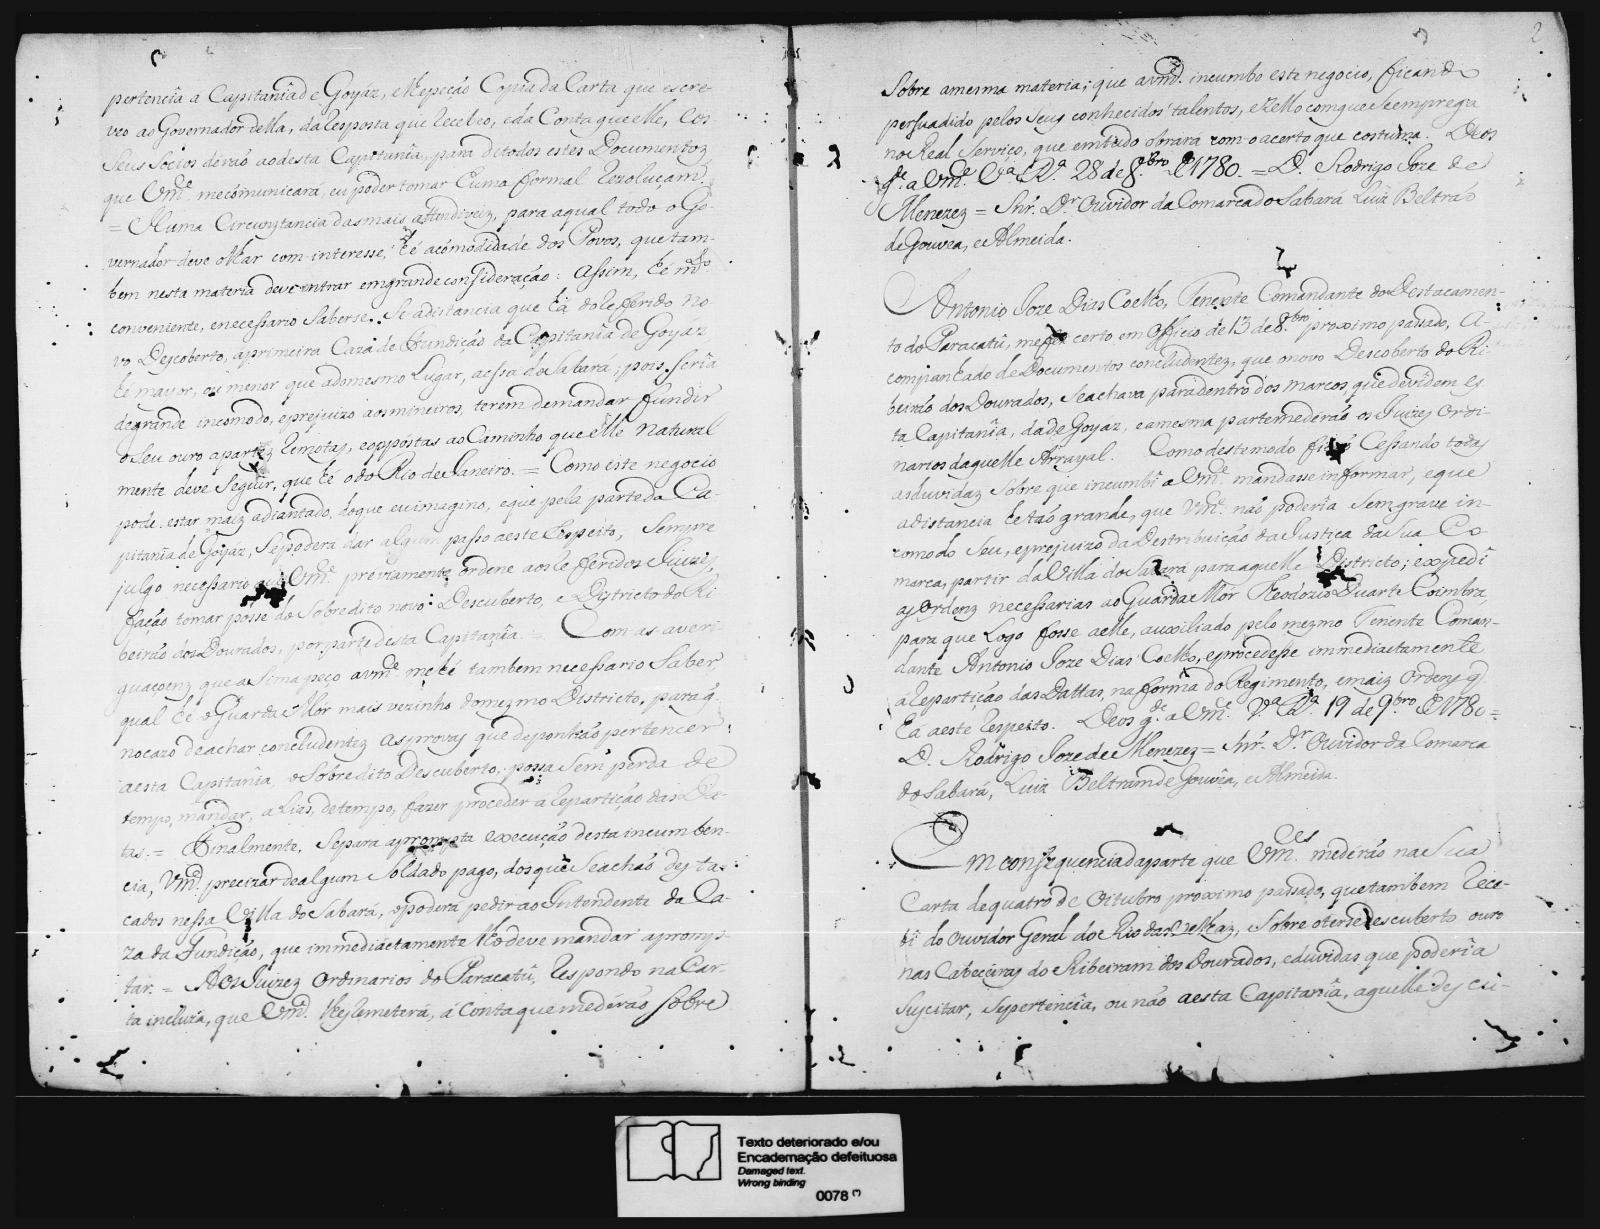 pertencîa a Capitanîa de Goyáz, e lhe peção Copia da Carta que escre-
veo ao Governador della, da resposta que recebeo, e da Conta que elle, e os
Seus Socios derão ao desta Capitanîa, para de todos estes Documentoz
que Vm.ce me comunicará, eu poder tomar huma formal rezoluçam,
= Huma Circunstancia das mais attendiveiz, para a qual todo o Go-
vernador deve olhar com interesse, hé acómodidade dos Povos, que tam-
bem nesta materia deve entrar em grande consideração: Assim, hé m.to
conveniente, e necessario Saberse. Se adistancia que há do referido No-
vo Descoberto, aprimeira Caza de Fundição da Capitanîa de Goyáz
hé mayor, ou menor que adomesmo Lugar, aessa do Sabará; pois Seria
degrande incomodo, eprejuizo aosmineiros, terem demandar fundir
o Seu ouro apartez remotas, eoppóstas ao Caminho que elle natural
mente deve Seguir, que hé o do Rio de Janeiro. = Como éste negocio
pode estar maiz adiantado, doque eu imagino, eque pela parte da Ca-
pitanîa de Goyáz, Sepoderá dar algum passo aeste respeito, Sempre
julgo necessario que Vm.ce préviamente ordene aos referidos Juizes,
fação tomar posse do Sobredito novo Descuberto, e Districto do Ri
beirão dos Dourados, por parte desta Capitanîa. = Com as averi-
guaçoenz que aSima peço avm.ce me hé tambem necessario Saber
qual hé o Guarda Mór mais vezinho domezmo Districto, para q.
no cazo de achar concludentez as provas que deponhão pertencer
aesta Capitanîa, o Sobredito Descuberto, possa Sem perda de
tempo, mandar, aLias, detempo, fazer proceder á repartição das Da-
tas. = Finalmente, Separa aprompta execução desta incumben-
cia, Vm.ce precizar dealgum Soldado pago, dos que Seachão desta-
cados nessa Villa do Sabará, opoderá pedir ao Intendente da Ca-
za da Fundição, que immediactamente lho deve mandar apromp-
tar. = Aos Juizes Ordinarios do Paracatû, respondo na Car-
ta incluza, que Vm.ce lhes remeterá, á Conta que mederão Sobre
2
Sobre amesma materia; que avm.ce incumbo este negocio, ficando
persuadido pelos Seus conhecidos talentos, e Zello com que Seemprega
no Real Serviço, que emtudo obrará com o acerto que costuma. Deos
g.e a Vm.ce V.a R.a 28 de 8.bro de 1780. = D. Rodrigo Joze de
Menezez = Snr. D.r Ouvidor da Comarca do Sabará Luiz Beltrão
de Gouvea, e Almeida.
Antonio Joze Dias Coelho, Tenente Comandante do Destacamen-
to do Paracatû, me fez certo em Officio de 13 de 8.bro proximo passado, A-
companhado de Documentos concludentez, que onovo Descoberto do Ri-
beirão dos Dourados, Seachava para dentro dos Marcos, que devidem es
ta Capitanîa, da de Goyaz, e amesma parte mederão os Juizes Ordi-
narios daquelle Arrayal. Como deste modo ficão Cessando todas
as duvidaz Sobre que incumbî a Vm.ce mandasse informar, e que
adistancia hé tão grande, que Vm.ce não poderîa Sem grave in-
comodo Seu, e prejuizo da Destribuição da Justiça da Sua Co-
marca, partir da Villa do Sabará para aquelle Districto; expedî
as Ordenz necessarias ao Guarda Mór Theodózio Duarte Coimbra,
para que Logo fosse aelle, auxiliado pelo mezmo Tenente Coman-
dante Antonio Joze Dias Coelho, e procedesse immediactamente
á repartição das Dattas, na forma do Regimento, emaiz Ordens q.
há aeste respeito. Deos g.de a Vm.ce V.a R.a 19 de 9.bro de 1780 =
D. Rodrigo Joze de Menezez = Snr. D.r Ouvidor da Comarca
do Sabará, Luiz Beltram de Gouvêa, e Almeida.
Em consequencia da parte que Vm.ces mederão na Sua
Carta de quatro de Outubro proximo passado, que tambem rece-
bî do Ouvidor Geral do Rio das Velhaz, Sobre oterse descuberto ouro
nas Cabeceiras do Ribeiram dos Dourados, e duvidas que poderîa
Suscitar, Sepertencîa, ou não aesta Capitanîa, aquelle des cu-
Texto deteriorado e/ou
Encadernação defeituosa
Damaged text.
Wrong binding
0078 (*)